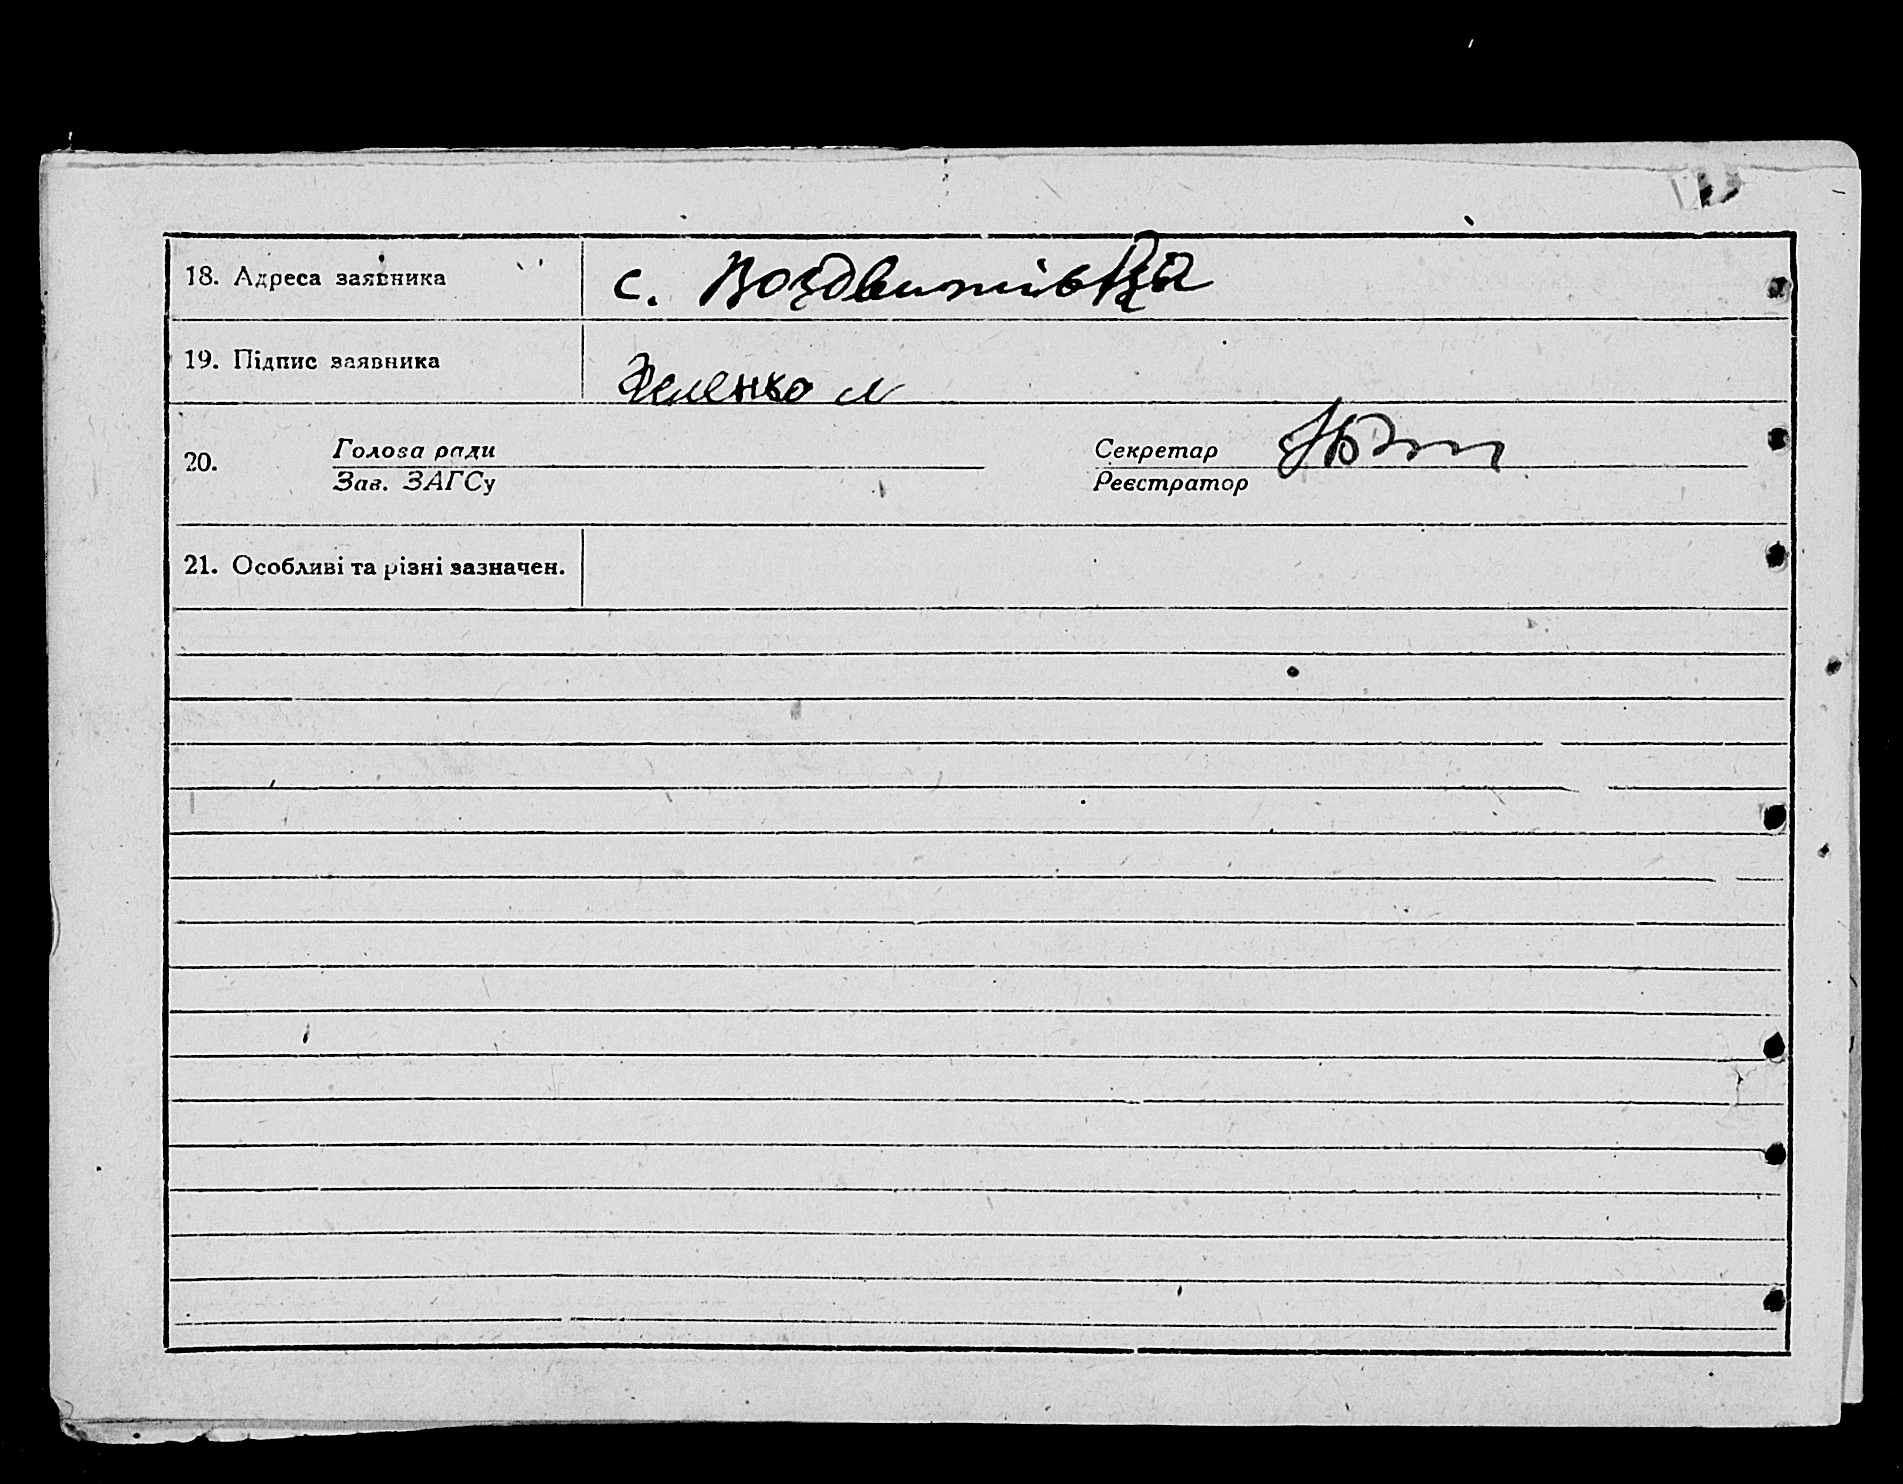 18. Адреса заявника с. Воздвижівка
19. Підпис заявника Зеленко
20. Голова ради Секретар
Зав. ЗАГСу Реєстратор
21. Особливі та різні зазначен.